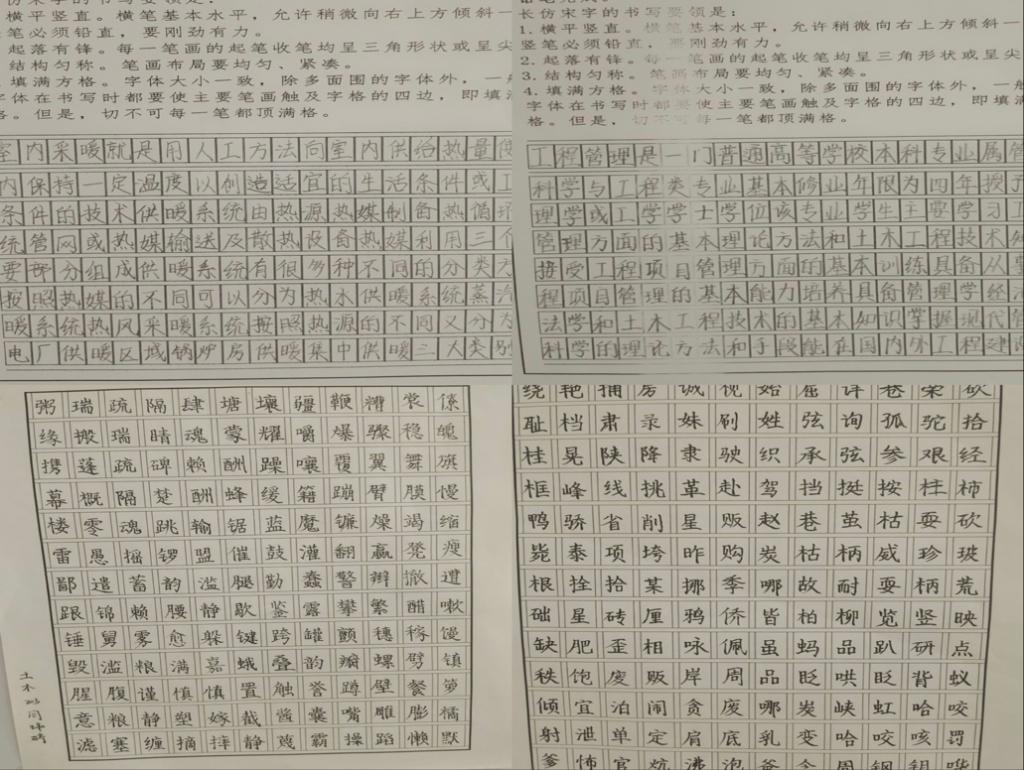 横平竖直。横笔基本水平，允许稍微向右上方倾斜一
笔必须铅直，要刚劲有力。
起落有锋。每一笔画的起笔收笔均呈三角形状或呈尖
结构匀称。笔画布局要均匀、紧凑。
填满方格。字体大小一致，除多面围的字体外，一般
字体在书写时都要使主要笔画触及字格的四边，即填满
格。但是，切不可每一笔都顶满格。
室内采暖就是用人工方法向室内供给热量使
内保持一定温度以创造适宜的生活条件或工
条件的技术供暖系统由热源热媒制备热循环
统管网或热媒输送及散热设备热媒利用三个
要部分组成供暖系统有很多种不同的分类方
按照热媒的不同可以分为热水供暖系统蒸汽
暖系统热风采暖系统按照热源的不同又分为
电厂供暖区域锅炉房供暖集中供暖三大类别
长仿宋字的书写要领是：
1. 横平竖直。横笔基本水平，允许稍微向右上方倾斜一
竖笔必须铅直，要刚劲有力。
2. 起落有锋。每一笔画的起笔收笔均呈三角形状或呈尖
3. 结构匀称。笔画布局要均匀、紧凑。
4. 填满方格。字体大小一致，除多面围的字体外，一般
字体在书写时都要使主要笔画触及字格的四边，即填满
格。但是，切不可每一笔都顶满格。
工程管理是一门普通高等学校本科专业属管
科学与工程类专业基本修业年限为四年授予
理学或工学学士学位该专业学生主要学习工
管理方面的基本理论方法和土木工程技术知
接受工程项目管理方面的基本训练具备从事
程项目管理的基本能力培养具备管理学经济
法学和土木工程技术的基本知识掌握现代管
科学的理论方法和手段能在国内外工程建设
粥瑞疏隔肆塘壤疆鞭糟裳傺
缘搬瑞睛魂蒙耀嚼爆骤稳魄
携蓬疏碑赖酬躁嚷覆翼舞旗
幕概隔楚酬蜂缓籍蹦臂膜慢
楼零魂跳输锯蓝魔镰燥竭缩
雷愚摇锣盟催鼓灌翻赢凳瘦
鄙遣蓄韵滥腿勤蠢警辩撤遭
跟锦赖腰静歇鉴露攀繁醋嗽
锤舅雾愈躲键跨罐颤穗稼馒
毁滥粮满嘉蛾叠韵瓣螺劈镇
腥腹谨慎慎置触誉蹲壁餐箩
意粮静塑嫁截酱囊嘴雕膨橘
滤塞缠摘摔静蔑霸操蹈懒默
绕艳捕房诚视始屈详巷荣砍
耻档肃录妹刷姓弦询孤驼拾
桂晃陕降隶驶织承弦参艰经
框峰线挑革赴驾挡挺按柱柿
鸭骄省削星贩赵巷茧枯耍砍
毙泰项垮昨购炭枯柄威珍玻
根拴拾某挪季哪故耐耍柄荒
础星砖厘鸦侨皆柏柳览竖映
缺肥歪相咏佩虽蚂品趴研点
秩饱废贩岸周品眨哄眨背蚁
倾宜泊闹贪废哪炭峡虹哈咬
射泄单定肩底乳变哈咬咳罚
爹怖官炕沸泡爸今周钢钥哗